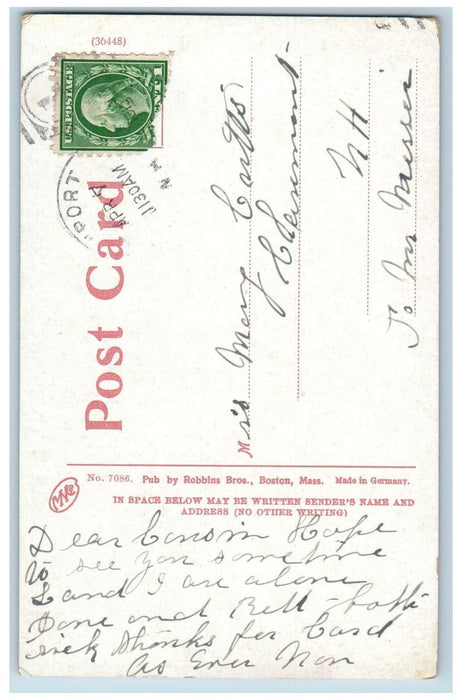 (36448)
U.S. POSTAGE
PORT
APR
1130AM
N H
Post Card
Miss Mary Coutts
Claremont
N H
To Mr Messer
No. 7086. Pub by Robbins Bros., Boston, Mass. Made in Germany.
IN SPACE BELOW MAY BE WRITTEN SENDER'S NAME AND
ADDRESS (NO OTHER WRITING)
Dear Cousin Hope
to see you sometime
L and I are alone
Dane and Bell - both
sick thanks for Card
As Ever Nan